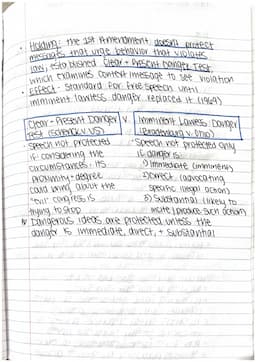 • Holding: the 1st Amendment doesn't protect
messages that urge behavior that violate
law, established Clear + Present Danger Test,
which examines context/message to see violation
• Effect - Standard for free speech until
imminent lawless danger replaced it (1969)
Clear + Present Danger
Test (Schenck v. US)
v.
Imminent Lawless Danger
(Brandenburg v. Ohio)
• Speech not protected
if considering the
circumstances, its
proximity + degree
could bring about the
"evil" congress is
trying to stop
• Speech not protected only
if danger is:
1) Immediate (imminent)
2) Direct (advocating
specific illegal action)
3) Substantial (likely to
incite/produce such action)
Dangerous ideas are protected unless the
danger is immediate, direct, + substantial